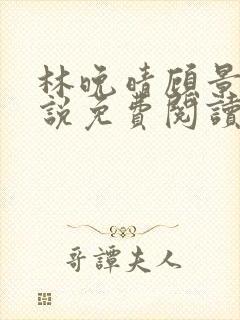 林晚晴顾景
說免費閱讀
哥譚夫人